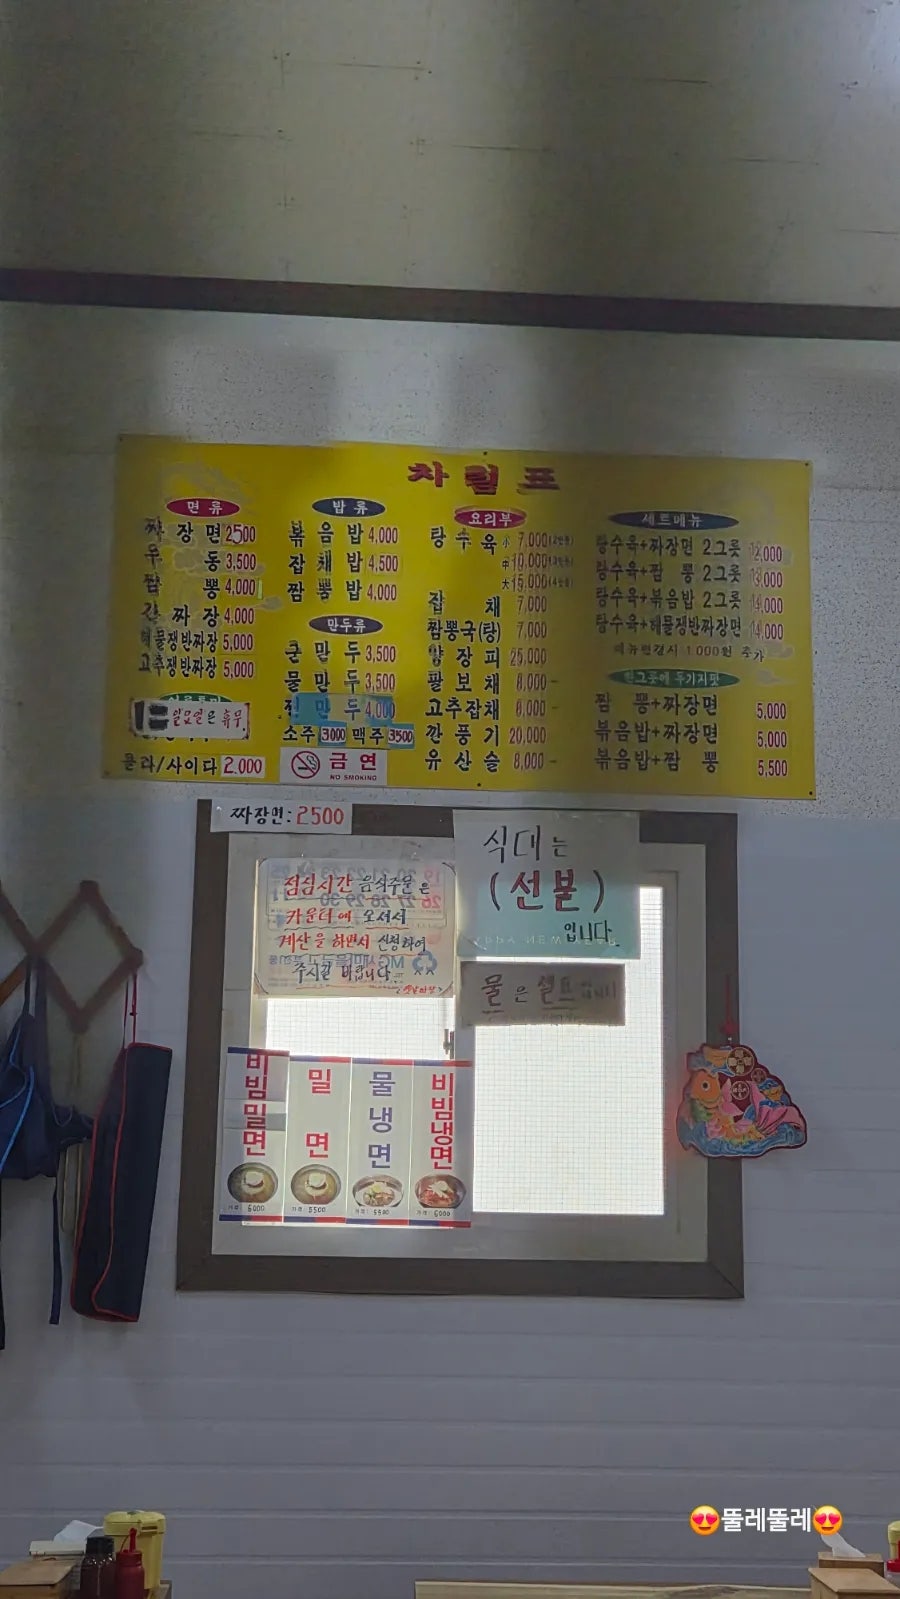 차림표
면류
짜장면 2500
우동 3,500
짬뽕 4,000
간짜장 4,000
해물쟁반짜장 5,000
고추쟁반짜장 5,000
일요일은 휴무
콜라/사이다 2.000
밥류
볶음밥 4,000
잡채밥 4,500
짬뽕밥 4,000
만두류
군만두 3,500
물만두 3,500
찐만두 4,000
소주 3000 맥주 3500
금연
NO SMOKING
요리부
탕수육 小 7,000(2인분)
中 10,000(3인분)
大 15,000(4인분)
잡채 7,000
짬뽕국(탕) 7,000
양장피 25,000
팔보채
고추잡채
깐풍기 20,000
유산슬 8,000-
세트메뉴
탕수육+짜장면 2그릇 12,000
탕수육+짬뽕 2그릇 13,000
탕수육+볶음밥 2그릇 14,000
탕수육+해물쟁반짜장면 14,000
메뉴변경시 1.000원 추가
한그릇에 두가지맛
짬뽕+짜장면 5,000
볶음밥+짜장면 5,000
볶음밥+짬뽕 5,500
짜장면: 2500
점심시간 음식주문은
카운터에 오셔서
계산을 하면서 신청하여
주시길 바랍니다
식대는
(선불)
입니다.
물은 셀프입니다
비빔밀면
가격: 6000
밀면
가격: 5500
물냉면
가격: 5500
비빔냉면
가격: 6000
😍뚤레뚤레😍